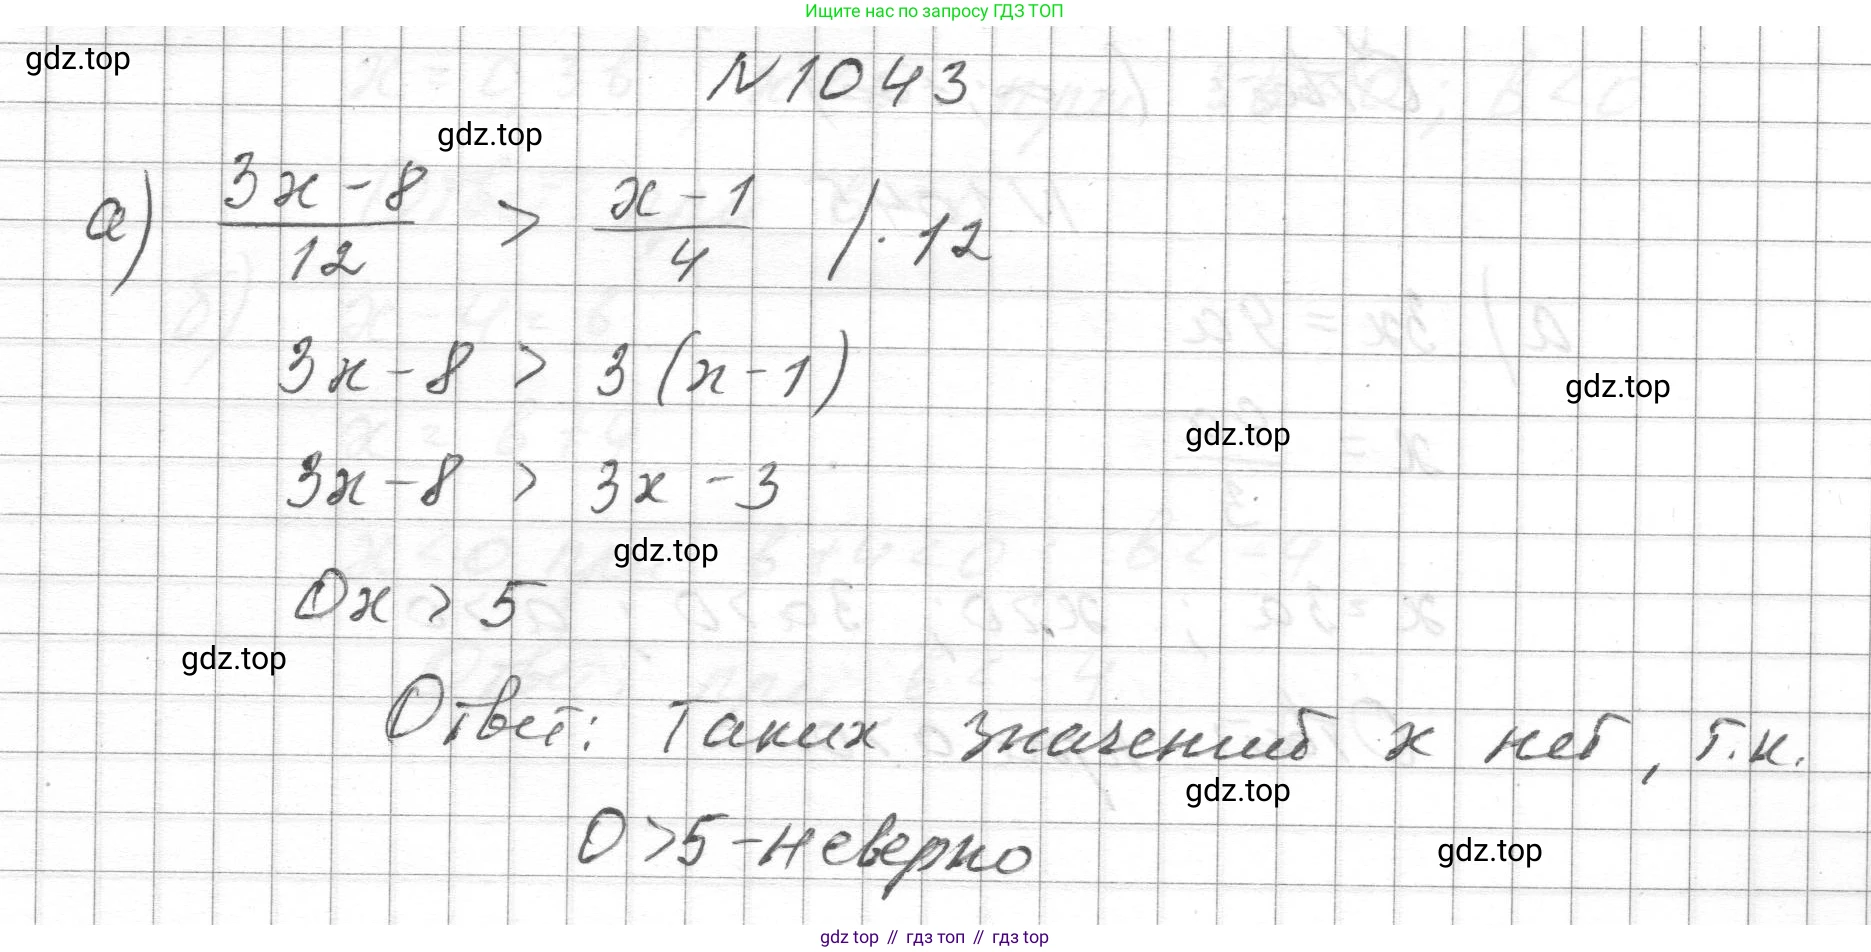 Ищите нас по запросу ГДЗ ТОП
gdz.top
N1043
gdz.top
а) (3x - 8)/12 > (x - 1)/4 /·12
3x - 8 > 3(x - 1)
gdz.top
gdz.top
3x - 8 > 3x - 3
gdz.top
0x > 5
gdz.top
Ответ: Таких значений x нет, т.к.
gdz.top
0 > 5 - неверно
gdz.top
gdz top // гдз топ // гдз top